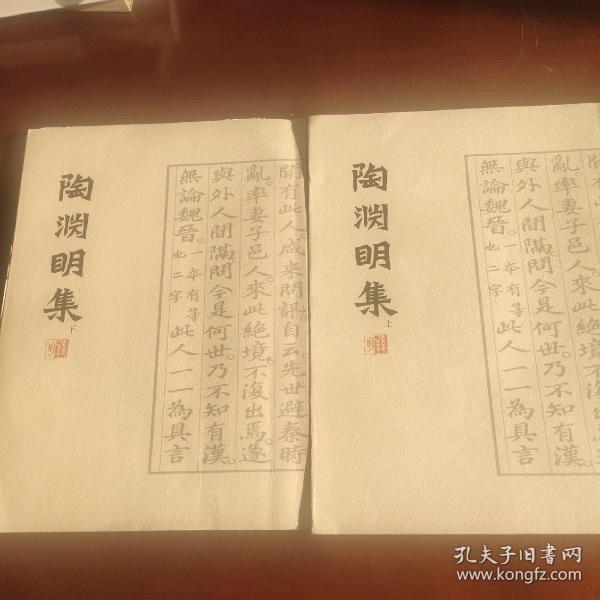 陶渊明集
下
聞有此人咸来問訊自云先世避秦時
亂率妻子邑人來此絶境不復出焉遂
與外人間隔問今是何世乃不知有漢
無論魏晉一本有等也二字此人一一為具言
陶渊明集
上
亂率妻子邑人來此絶境不復出焉遂
與外人間隔問今是何世乃不知有漢
無論魏晉一本有等也二字此人一一為具言
孔夫子旧書网
www.kongfz.com